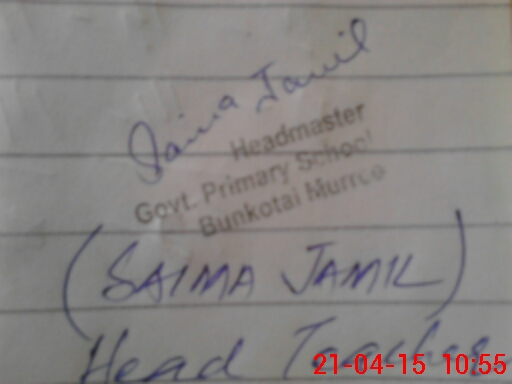 Saima Jamil
Headmaster
Govt. Primary School
Bunkotai Murree
(SAIMA JAMIL)
Head Teacher
21-04-15 10:55